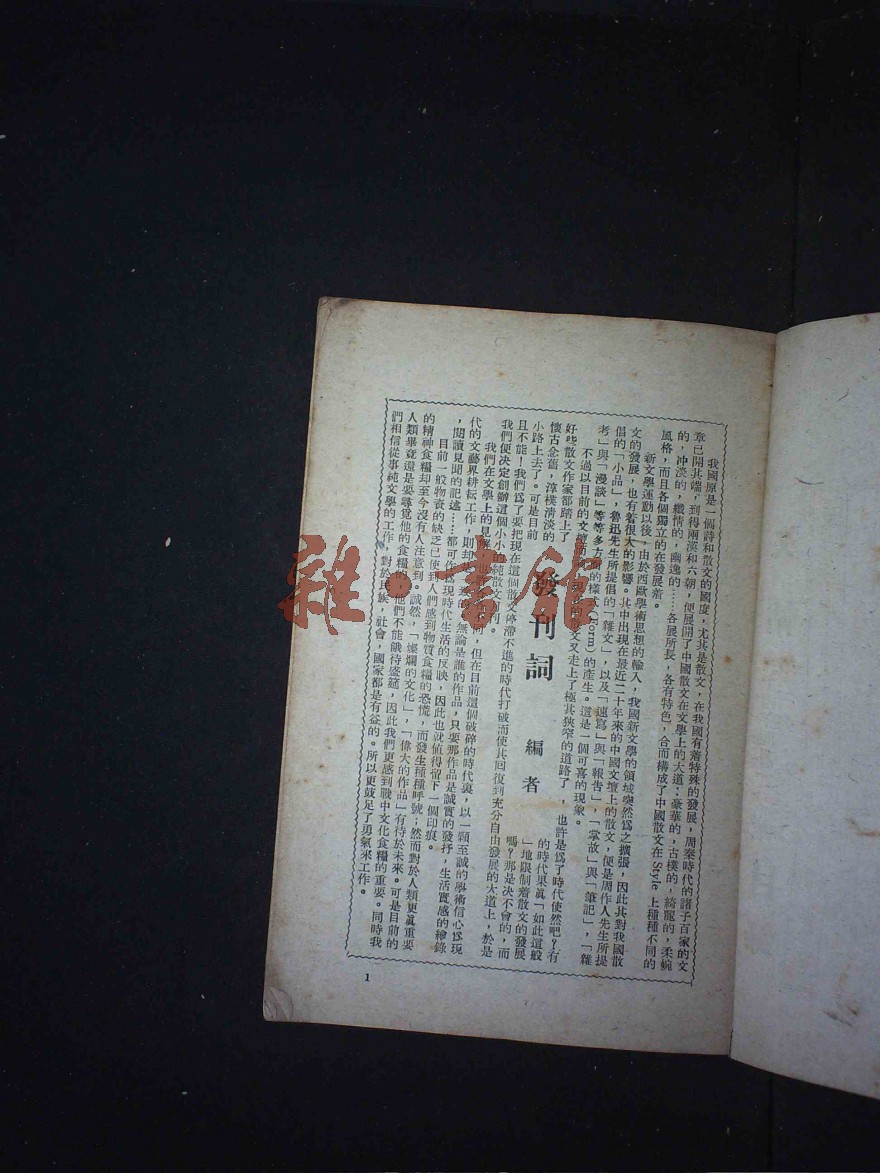 我國原是一個詩和散文的國度，尤其是散文，在我國有着特殊的發展，周秦時代的諸子百家的文
章已開其端，到得兩漢和六朝，便展開了中國散文在文學上的大道：豪華的，古樸的，綺麗的，柔婉
的，冲淡的，纖情的，幽逸的……各展所長，各有特色，合而構成了中國散文在 Style 上種種不同的
風格，而且各個獨立的在發展着。
新文學運動以後，由於西歐學術思想的輸入，我國新文學的領域突然爲之擴張，因此其對我國散
文的發展，也有着很大的影響。其中出現在最近二十年來的中國文壇上的散文，便是周作人先生所提
倡的「小品」，魯迅先生所提倡的「雜文」，以及「速寫」與「報告」，「掌故」與「筆記」，「雜
考」與「漫談」等等多方面的樣式(Form)的產生。這是一個可喜的現象。
不過以目前的文壇而論，現在的散文又走上了極其狹窄的道路了，也許是爲了時代使然吧？有
好些散文作家都踏上了
懷古念舊，淳樸清淡的
小路上去了。可是目前
發刊詞
編者
的時代果眞「如此這般
」地限制着散文的發展
嗎？那是決不會的，而
且不能！我們爲了要把現在這個散文停滯不進的時代打破而使其回復到充分自由發展的大道上，於是
我們便決定創辦這個小小的純散文月刊。
我們在文學上的見解，也許各有不同，但在目前這個破碎的時代裏，以一顆至誠的學術信心爲現
代的文藝界耕耘工作，則却是一致的。無論是誰的作品，只要那作品是誠實的發抒，生活實感的繪錄
，閱讀見聞的記述……都可作爲現時代生活的反映，因此也就値得留下一個印痕。
目前一般物資的缺乏已使到人們感到物質食糧的恐慌，而發生種種呼號；然而對於人類更眞重要
的精神食糧却至今沒有人注意到。誠然，「燦爛的文化」，「偉大的作品」有待於未來。可是目前的
人類畢竟還是要尋覓他的食糧的，他們不能餓待盛筵，因此我們更感到戰中文化食糧的重要。同時我
們相信從事純文學的工作，對於民族，社會，國家都是有益的。所以更鼓足了勇氣來工作。
1
雜·書館